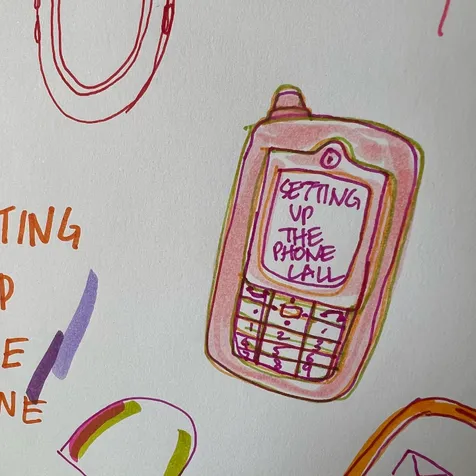 TING
P
E
NE
SETTING
UP
THE
PHONE
CALL